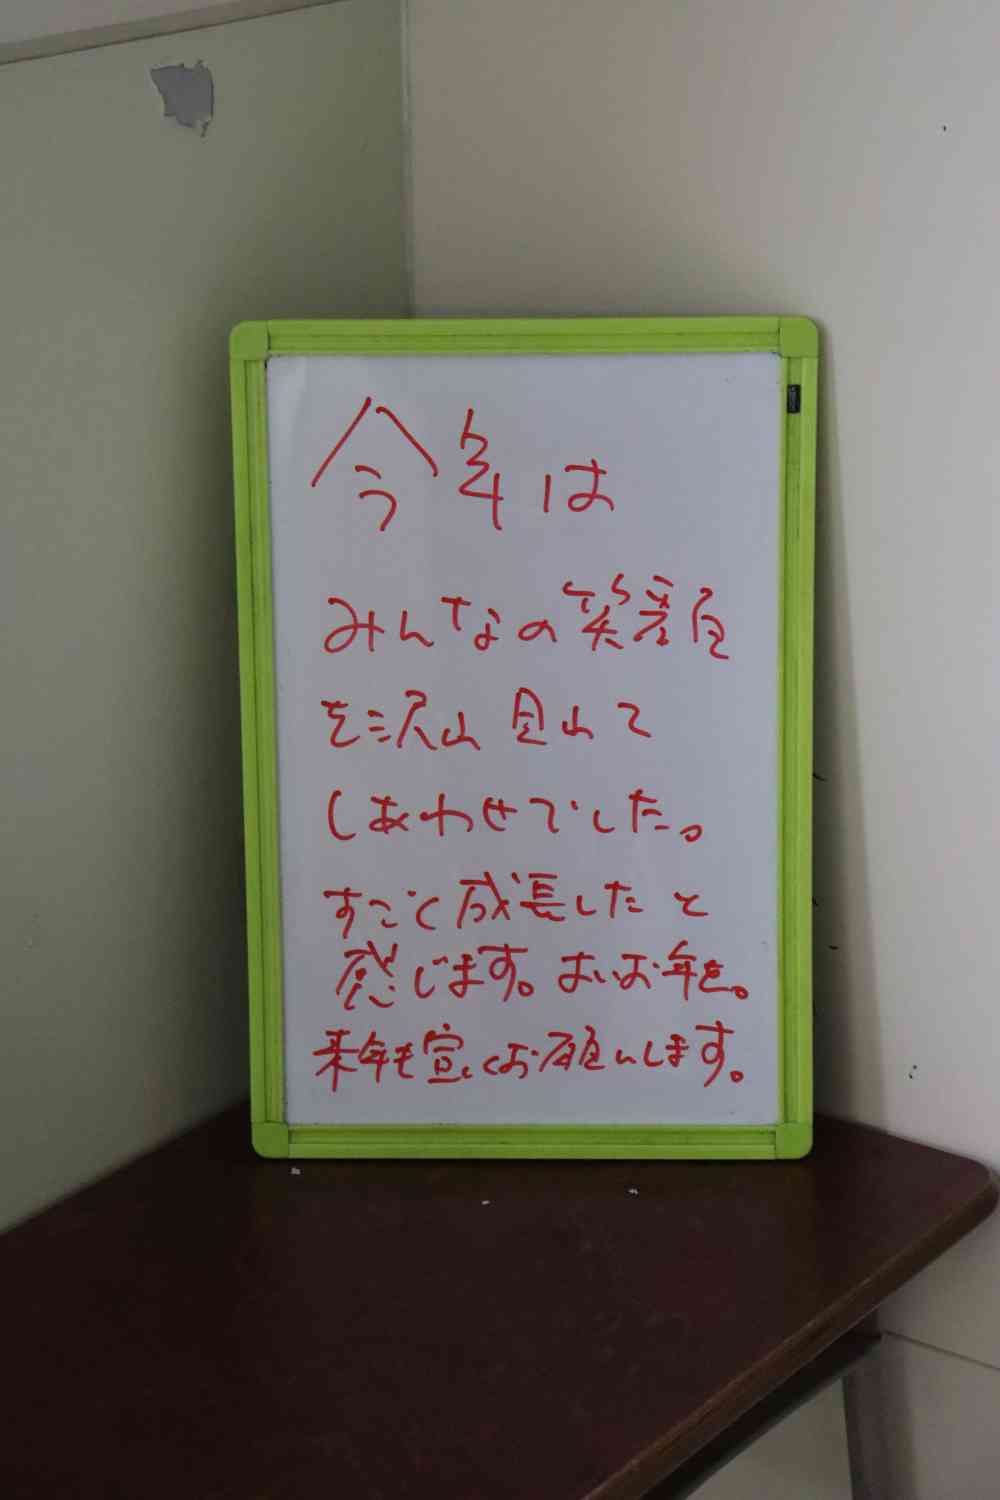 今年は
みんなの笑顔
を沢山見れて
しあわせでした。
すごく成長したと
感じます。よいお年を。
来年も宜しくお願いします。